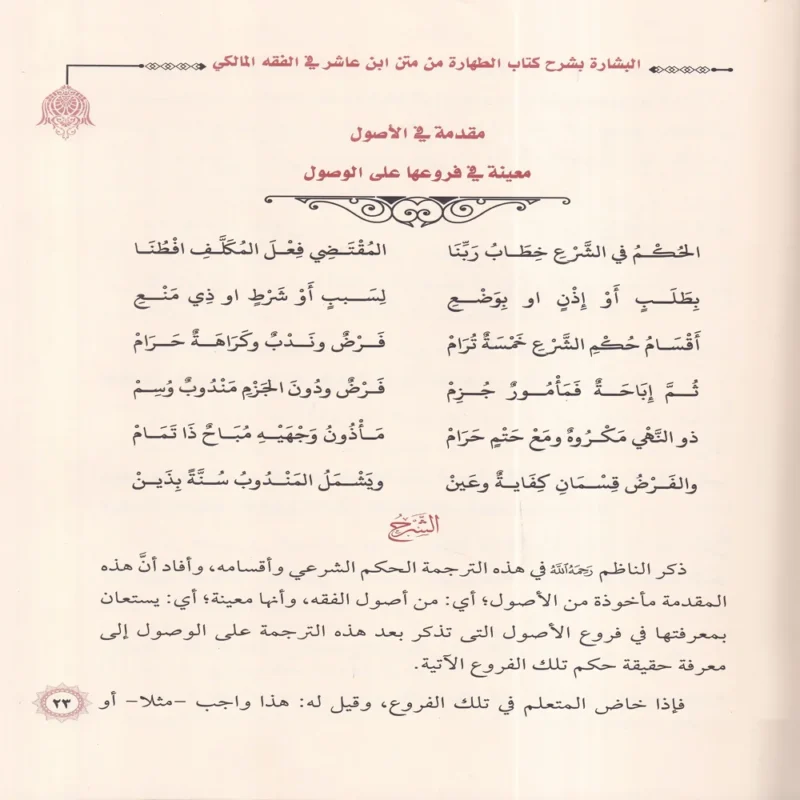 البشارة بشرح كتاب الطهارة من متن ابن عاشر في الفقه المالكي
مقدمة في الأصول
معينة في فروعها على الوصول
الحُكْمُ في الشَّرْعِ خِطَابُ رَبِّنَا المُقْتَضِي فِعْلَ المُكَلَّفِ افْطُنَا
بِطَلَبٍ أَوْ إِذْنٍ او بِوَضْعِ لِسَببٍ أَوْ شَرْطٍ او ذِي مَنْعِ
أَقْسَامُ حُكْمِ الشَّرْعِ خَمْسَةٌ تُرَامْ فَرْضٌ ونَدْبٌ وكَرَاهَةٌ حَرَامْ
ثُمَّ إِبَاحَةٌ فَمَأْمُورٌ جُزِمْ فَرْضٌ ودُونَ الجَزْمِ مَنْدُوبٌ وُسِمْ
ذو النَّهْيِ مَكْرُوهٌ ومَعْ حَتْمٍ حَرَامْ مَأْذُونُ وَجْهَيْهِ مُبَاحٌ ذَا تَمَامْ
والفَرْضُ قِسْمَانِ كِفَايَةٌ وعَيْنْ ويَشْمَلُ المَنْدُوبُ سُنَّةً بِذَيـنْ
الشَّرْحُ
ذكر الناظم رَحِمَهُ اللَّهُ في هذه الترجمة الحكم الشرعي وأقسامه، وأفاد أنَّ هذه
المقدمة مأخوذة من الأصول؛ أي: من أصول الفقه، وأنها معينة؛ أي: يستعان
بمعرفتها في فروع الأصول التى تذكر بعد هذه الترجمة على الوصول إلى
معرفة حقيقة حكم تلك الفروع الآتية.
فإذا خاض المتعلم في تلك الفروع، وقيل له: هذا واجب -مثلا- أو
٢٣